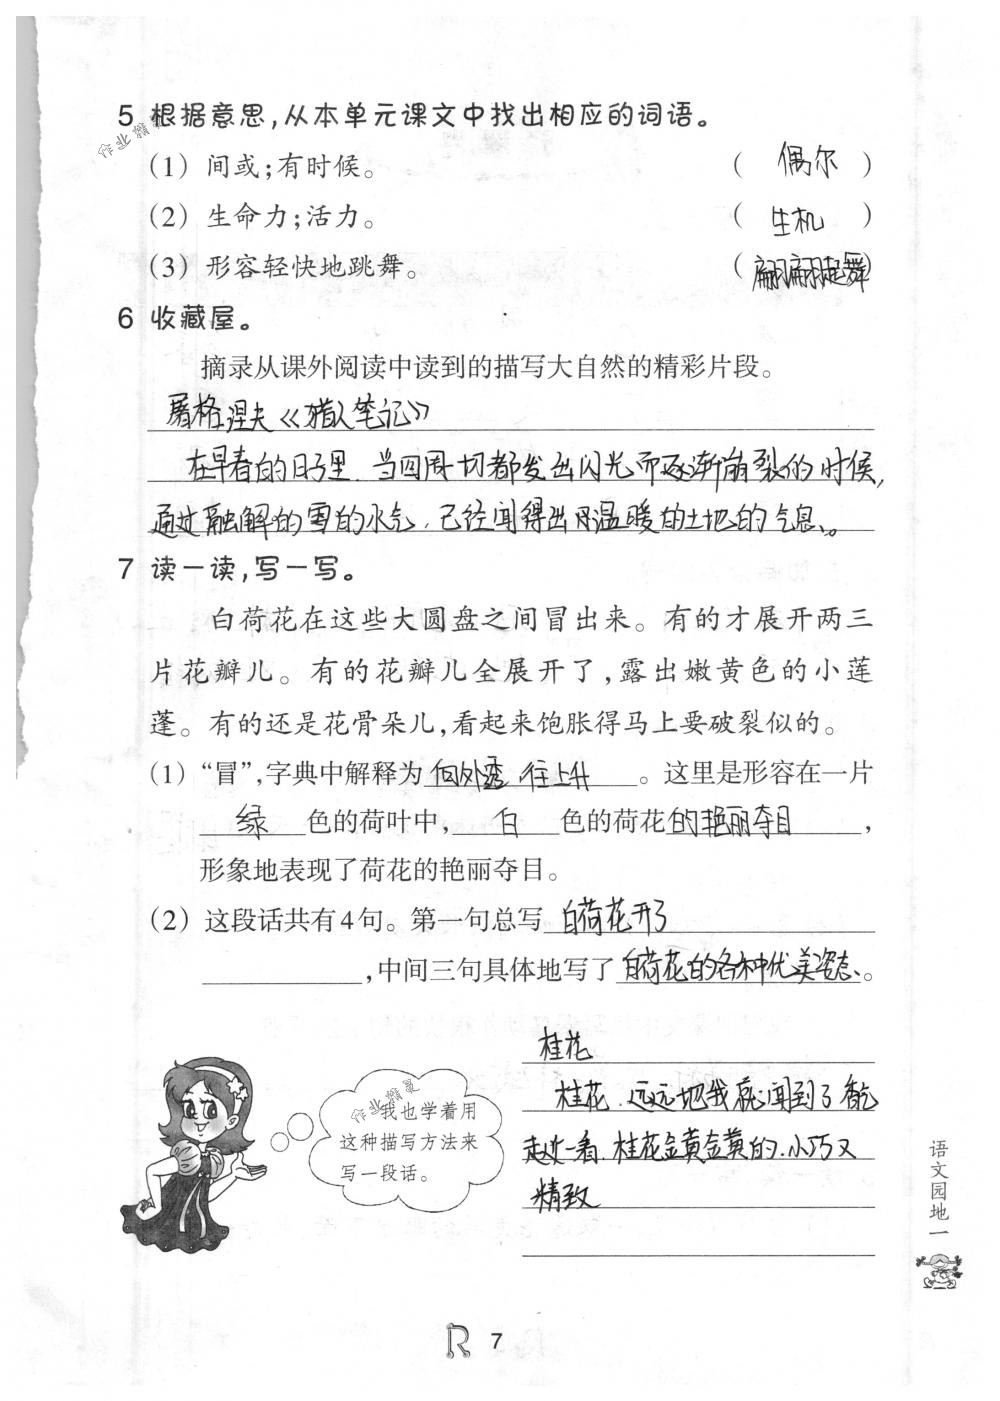 5 根据意思,从本单元课文中找出相应的词语。
作业精灵
(1) 间或;有时候。 ( 偶尔 )
(2) 生命力;活力。 ( 生机 )
(3) 形容轻快地跳舞。 ( 翩翩起舞 )
6 收藏屋。
摘录从课外阅读中读到的描写大自然的精彩片段。
屠格涅夫《猎人笔记》
在早春的日子里,当四周一切都发出闪光而逐渐崩裂的时候,
通过融解的雪的水气,已经闻得出温暖的土地的气息。
7 读一读,写一写。
白荷花在这些大圆盘之间冒出来。有的才展开两三
片花瓣儿。有的花瓣儿全展开了,露出嫩黄色的小莲
蓬。有的还是花骨朵儿,看起来饱胀得马上要破裂似的。
(1) “冒”,字典中解释为 向外透,往上升 。这里是形容在一片
绿 色的荷叶中, 白 色的荷花 的艳丽夺目 ,
形象地表现了荷花的艳丽夺目。
(2) 这段话共有4句。第一句总写 白荷花开了
,中间三句具体地写了 白荷花的各种优美姿态 。
桂花
桂花,远远地我就闻到了香气
走过一看,桂花金黄金黄的,小巧又
精致
作业精灵
我也学着用
这种描写方法来
写一段话。
语文园地一
R 7